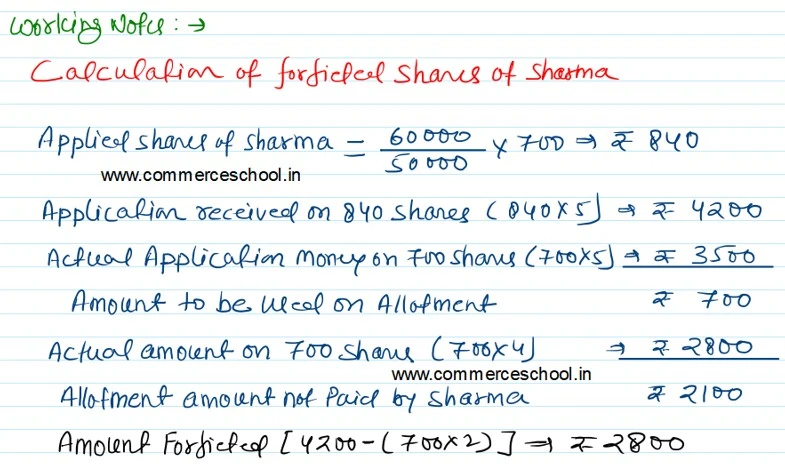 Working Notes : →
Calculation of forficted Shares of Sharma
Applied shares of sharma = 60000/50000 × 700 ⇒ ₹ 840
www.commerceschool.in
Application received on 840 shares (840×5) → ₹ 4200
Actual Application Money on 700 shares (700×5) → ₹ 3500
Amount to be Used on Allotment ₹ 700
Actual amount on 700 share (700×4) → ₹ 2800
www.commerceschool.in
Allotment amount not Paid by Sharma ₹ 2100
Amount Forficted [4200-(700×2)] → ₹ 2800